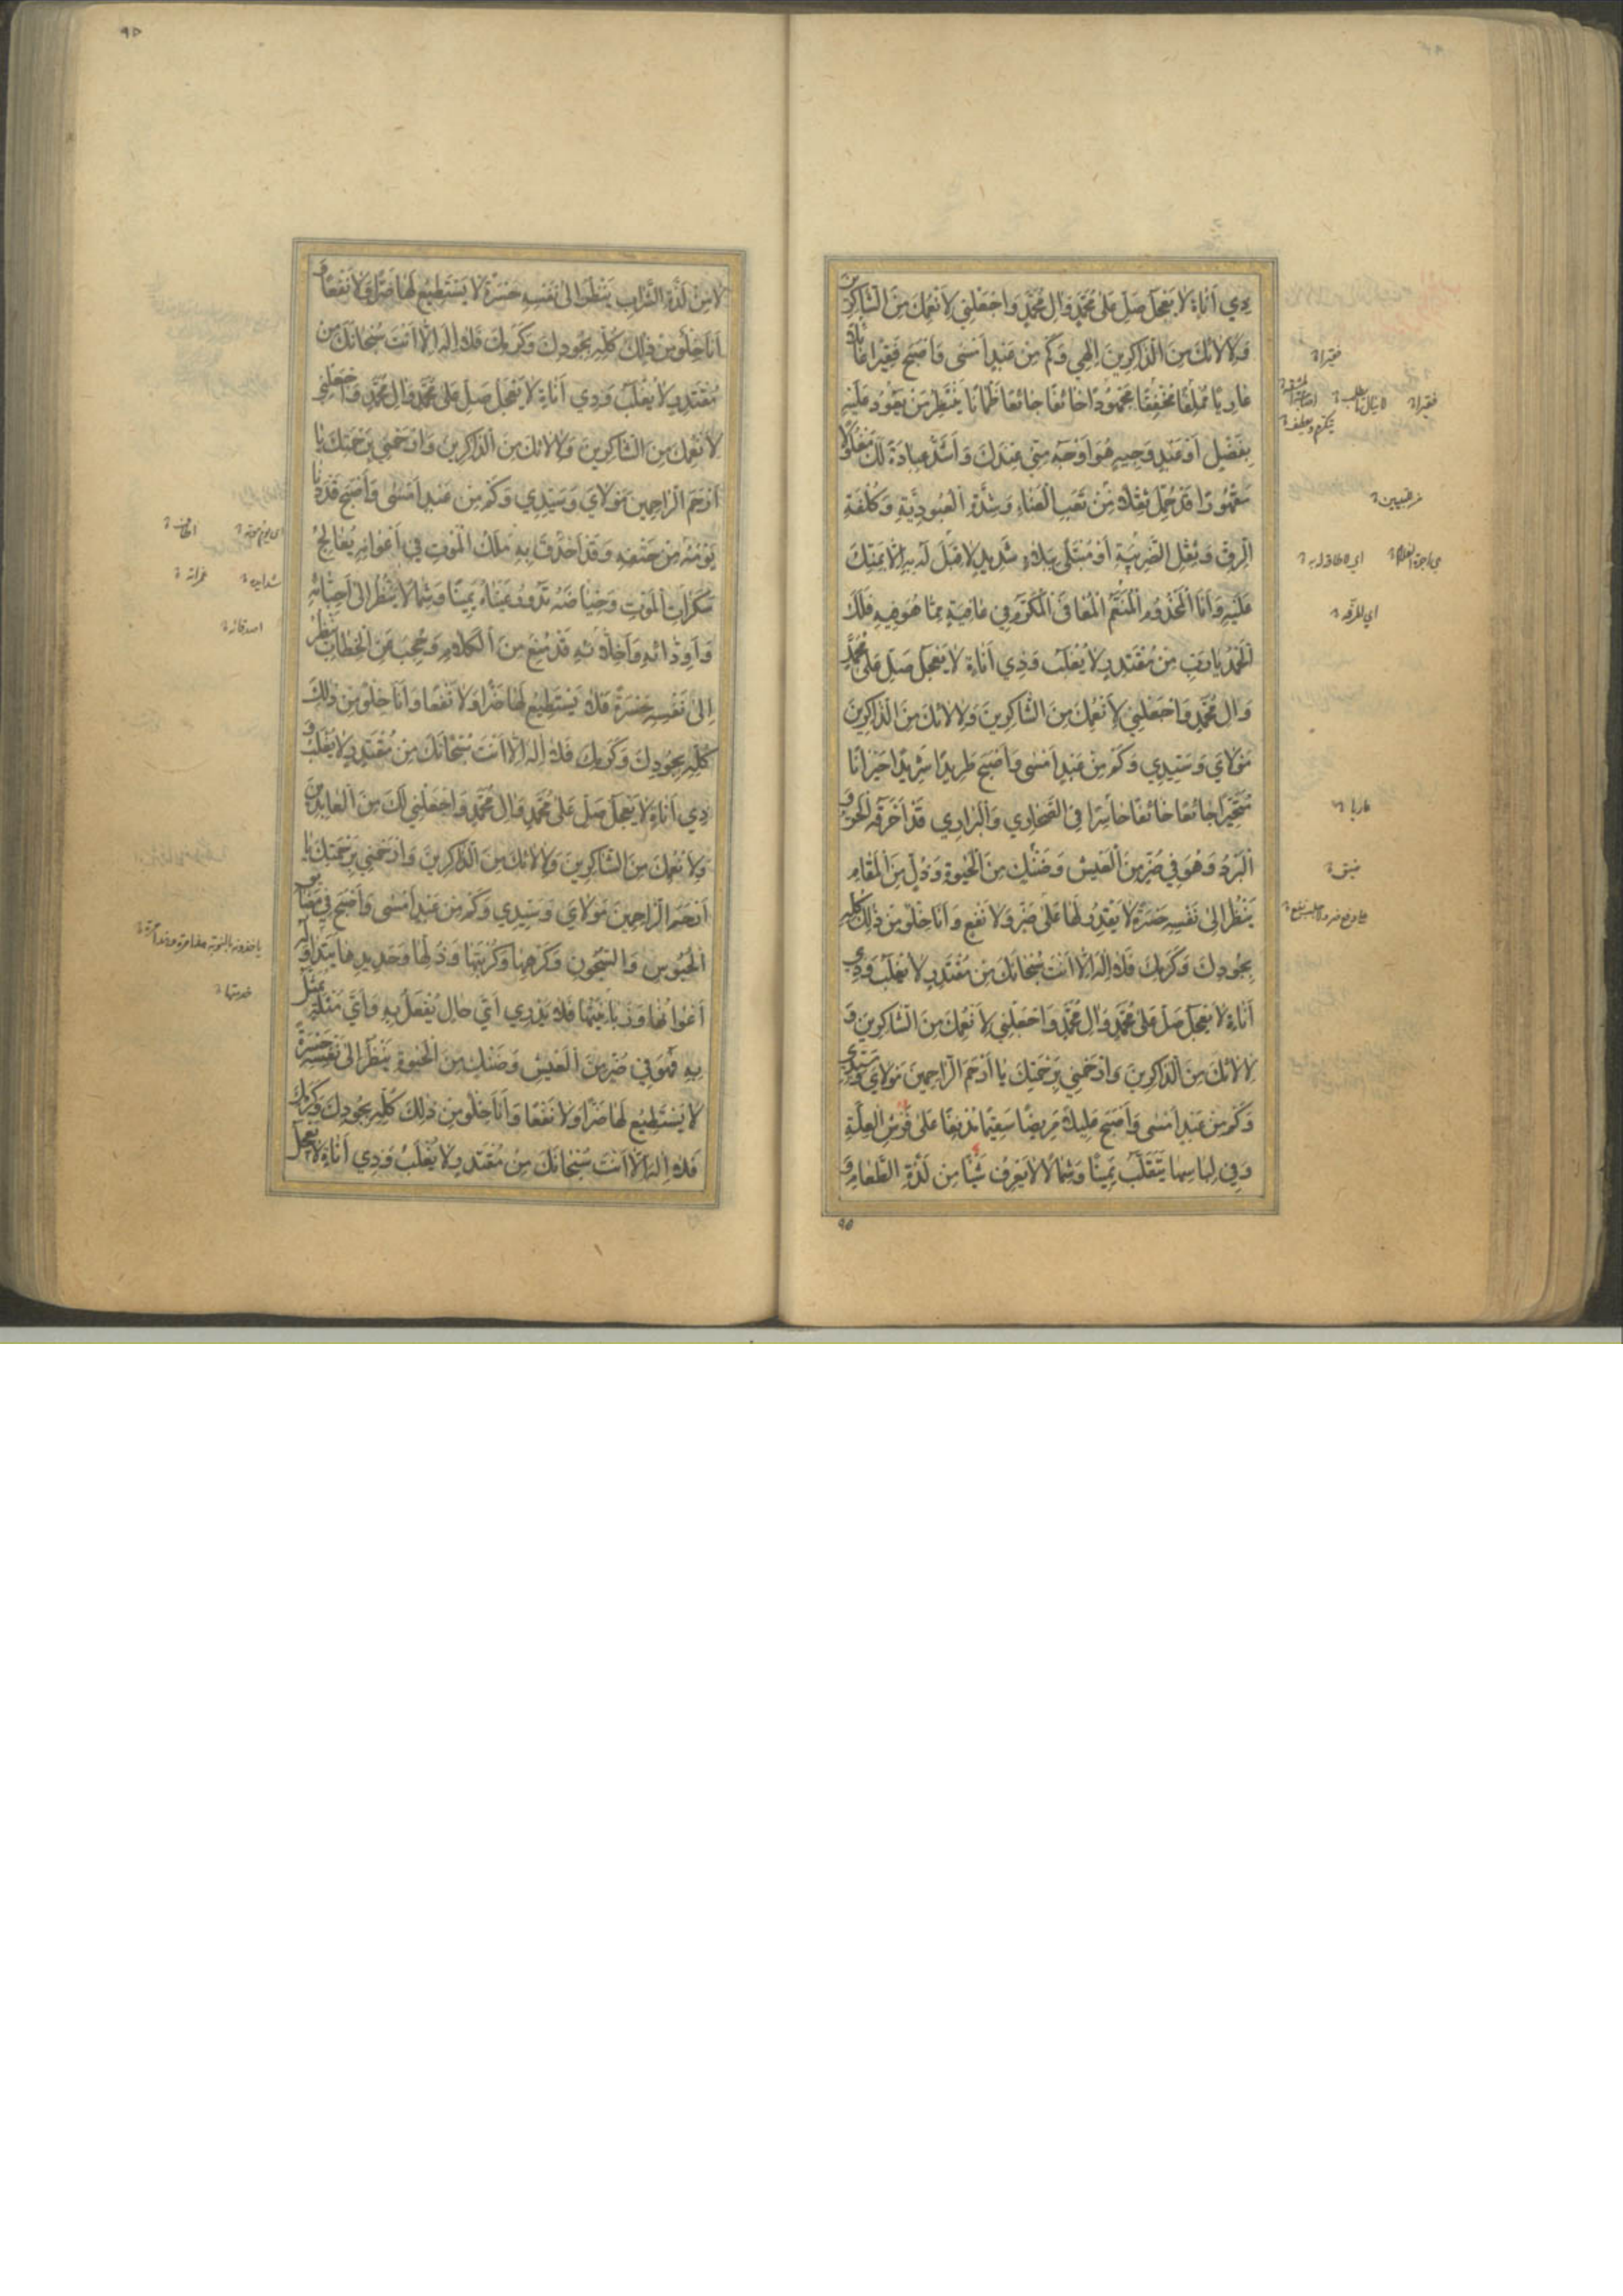 ذِي أَنَاةٍ لَا يَعْجَلُ صَلِّ عَلَى مُحَمَّدٍ وَآلِ مُحَمَّدٍ وَاجْعَلْنِي لِأَنْعُمِكَ مِنَ الشَّاكِرِينَ
وَلِآلَائِكَ مِنَ الذَّاكِرِينَ إِلٰهِي وَكَمْ مِنْ عَبْدٍ أَمْسَى وَأَصْبَحَ فَقِيرًا عَائِلًا
عَارِيًا مُمْلِقًا مُخْفِقًا مَجْهُودًا خَائِفًا جَائِعًا ظَمْآنًا يَنْتَظِرُ مَنْ يَعُودُ عَلَيْهِ
بِفَضْلٍ أَوْ عَبْدٍ وَجِيهٍ هُوَ أَوْجَهُ مِنِّي عِنْدَكَ وَأَشَدُّ عِبَادَةً لَكَ مَغْلُولًا
مَقْهُورًا قَدْ حُمِّلَ ثِقْلًا مِنْ تَعَبِ الْعَنَاءِ وَشِدَّةِ الْعُبُودِيَّةِ وَكُلْفَةِ
الرِّقِّ وَثِقْلِ الضَّرِيبَةِ أَوْ مُبْتَلًى بِبَلَاءٍ شَدِيدٍ لَا قِبَلَ لَهُ بِهِ إِلَّا بِمَنِّكَ
عَلَيْهِ وَأَنَا الْمَخْدُومُ الْمُنَعَّمُ الْمُعَافَى الْمُكَرَّمُ فِي عَافِيَةٍ مِمَّا هُوَ فِيهِ فَلَكَ
الْحَمْدُ يَا رَبِّ مِنْ مُقْتَدِرٍ لَا يُغْلَبُ وَذِي أَنَاةٍ لَا يَعْجَلُ صَلِّ عَلَى مُحَمَّدٍ
وَآلِ مُحَمَّدٍ وَاجْعَلْنِي لِأَنْعُمِكَ مِنَ الشَّاكِرِينَ وَلِآلَائِكَ مِنَ الذَّاكِرِينَ
مَوْلَايَ وَسَيِّدِي وَكَمْ مِنْ عَبْدٍ أَمْسَى وَأَصْبَحَ طَرِيدًا شَرِيدًا حَيْرَانًا
مُتَحَيِّرًا جَائِعًا خَائِفًا حَاسِرًا فِي الصَّحَارِي وَالْبَرَارِي قَدْ أَحْرَقَهُ الْحَرُّ وَ
الْبَرْدُ وَهُوَ فِي ضُرٍّ مِنَ الْعَيْشِ وَضَنْكٍ مِنَ الْحَيٰوةِ وَذُلٍّ مِنَ الْمَقَامِ
يَنْظُرُ إِلَى نَفْسِهِ حَسْرَةً لَا يَقْدِرُ لَهَا عَلَى ضَرٍّ وَلَا نَفْعٍ وَأَنَا خِلْوٌ مِنْ ذٰلِكَ كُلِّهِ
بِجُودِكَ وَكَرَمِكَ فَلَا إِلٰهَ إِلَّا أَنْتَ سُبْحَانَكَ مِنْ مُقْتَدِرٍ لَا يُغْلَبُ وَذِي
أَنَاةٍ لَا يَعْجَلُ صَلِّ عَلَى مُحَمَّدٍ وَآلِ مُحَمَّدٍ وَاجْعَلْنِي لِأَنْعُمِكَ مِنَ الشَّاكِرِينَ وَ
لِآلَائِكَ مِنَ الذَّاكِرِينَ وَارْحَمْنِي بِرَحْمَتِكَ يَا أَرْحَمَ الرَّاحِمِينَ مَوْلَايَ وَسَيِّدِي
وَكَمْ مِنْ عَبْدٍ أَمْسَى وَأَصْبَحَ عَلِيلًا مَرِيضًا سَقِيمًا مُدْنِفًا عَلَى فُرُشِ الْعِلَّةِ
وَفِي لِبَاسِهَا يَتَقَلَّبُ يَمِينًا وَشِمَالًا لَا يَعْرِفُ شَيْئًا مِنْ لَذَّةِ الطَّعَامِ وَ
فقيرا
فقيرا
اي للرقه
عاريا
ضيق
٩٥
٩٥
لَا مِنْ لَذَّةِ الشَّرَابِ يَنْظُرُ إِلَى نَفْسِهِ حَسْرَةً لَا يَسْتَطِيعُ لَهَا ضَرًّا وَلَا نَفْعًا وَ
أَنَا خِلْوٌ مِنْ ذٰلِكَ كُلِّهِ بِجُودِكَ وَكَرَمِكَ فَلَا إِلٰهَ إِلَّا أَنْتَ سُبْحَانَكَ مِنْ
مُقْتَدِرٍ لَا يُغْلَبُ وَذِي أَنَاةٍ لَا يَعْجَلُ صَلِّ عَلَى مُحَمَّدٍ وَآلِ مُحَمَّدٍ وَاجْعَلْنِي
لِأَنْعُمِكَ مِنَ الشَّاكِرِينَ وَلِآلَائِكَ مِنَ الذَّاكِرِينَ وَارْحَمْنِي بِرَحْمَتِكَ يَا
أَرْحَمَ الرَّاحِمِينَ مَوْلَايَ وَسَيِّدِي وَكَمْ مِنْ عَبْدٍ أَمْسَى وَأَصْبَحَ قَدْ دَنَا
يَوْمُهُ مِنْ حَتْفِهِ وَقَدْ أَحْدَقَ بِهِ مَلَكُ الْمَوْتِ فِي أَعْوَانِهِ يُعَالِجُ
سَكَرَاتِ الْمَوْتِ وَحِيَاضَهُ تَدُورُ عَيْنَاهُ يَمِينًا وَشِمَالًا يَنْظُرُ إِلَى أَحِبَّائِهِ
وَأَوِدَّائِهِ وَأَخِلَّائِهِ قَدْ مُنِعَ مِنَ الْكَلَامِ وَحُجِبَ عَنِ الْخِطَابِ يَنْظُرُ
إِلَى نَفْسِهِ حَسْرَةً فَلَا يَسْتَطِيعُ لَهَا ضَرًّا وَلَا نَفْعًا وَأَنَا خِلْوٌ مِنْ ذٰلِكَ
كُلِّهِ بِجُودِكَ وَكَرَمِكَ فَلَا إِلٰهَ إِلَّا أَنْتَ سُبْحَانَكَ مِنْ مُقْتَدِرٍ لَا يُغْلَبُ وَ
ذِي أَنَاةٍ لَا يَعْجَلُ صَلِّ عَلَى مُحَمَّدٍ وَآلِ مُحَمَّدٍ وَاجْعَلْنِي لَكَ مِنَ الْعَابِدِينَ
وَلِأَنْعُمِكَ مِنَ الشَّاكِرِينَ وَلِآلَائِكَ مِنَ الذَّاكِرِينَ وَارْحَمْنِي بِرَحْمَتِكَ يَا
أَرْحَمَ الرَّاحِمِينَ مَوْلَايَ وَسَيِّدِي وَكَمْ مِنْ عَبْدٍ أَمْسَى وَأَصْبَحَ فِي مَضَائِقِ
الْحُبُوسِ وَالسُّجُونِ وَكَرْهِهَا وَكُرْبَتِهَا وَذُلِّهَا وَحَدِيدِهَا يَتَدَاوَلُهُ
أَعْوَانُهَا وَزَبَانِيَتُهَا فَلَا يَدْرِي أَيُّ حَالٍ يُفْعَلُ بِهِ وَأَيُّ مُثْلَةٍ يُمَثَّلُ
بِهِ فَهُوَ فِي ضُرٍّ مِنَ الْعَيْشِ وَضَنْكٍ مِنَ الْحَيٰوةِ يَنْظُرُ إِلَى نَفْسِهِ حَسْرَةً
لَا يَسْتَطِيعُ لَهَا ضَرًّا وَلَا نَفْعًا وَأَنَا خِلْوٌ مِنْ ذٰلِكَ كُلِّهِ بِجُودِكَ وَكَرَمِكَ
فَلَا إِلٰهَ إِلَّا أَنْتَ سُبْحَانَكَ مِنْ مُقْتَدِرٍ لَا يُغْلَبُ وَذِي أَنَاةٍ لَا يَعْجَلُ
اصدقائه
خدمتها